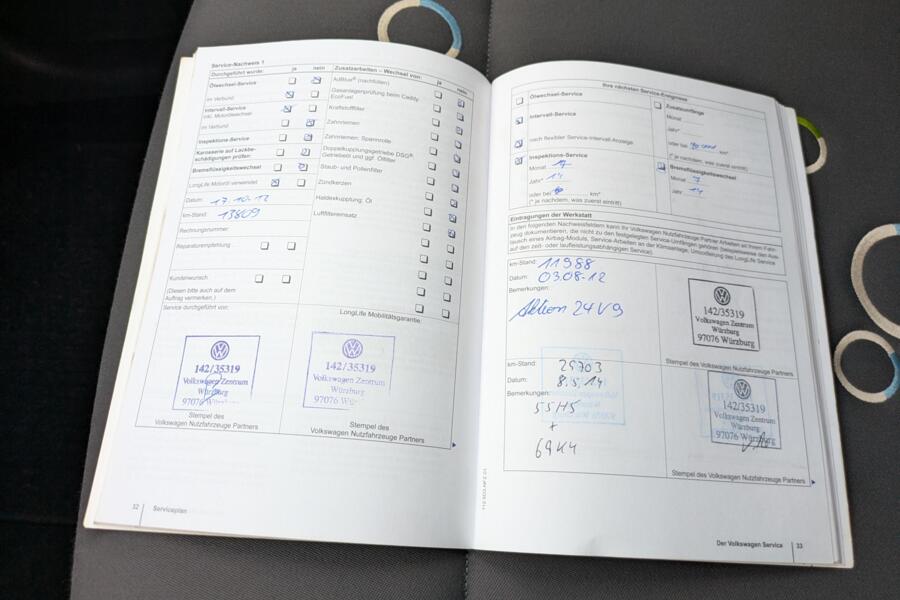 Service-Nachweis 1
Durchgeführt wurde: ja nein
Ölwechsel-Service
im Verbund
Intervall-Service
inkl. Motorölwechsel
im Verbund
Inspektions-Service
Karosserie auf Lackbe-
schädigungen prüfen:
Bremsflüssigkeitswechsel
LongLife Motoröl verwendet
Datum: 17.10.12
km-Stand: 13809
Rechnungsnummer:
Reparaturempfehlung
Kundenwunsch
(Diesen bitte auch auf dem
Auftrag vermerken.)
Service durchgeführt von:
142/35319
Volkswagen Zentrum
97076
Stempel des
Volkswagen Nutzfahrzeuge Partners
Zusatzarbeiten – Wechsel von: ja nein
AdBlue® (nachfüllen)
Gasanlagenprüfung beim Caddy
EcoFuel
Kraftstofffilter
Zahnriemen
Zahnriemen: Spannrolle
Doppelkupplungsgetriebe DSG®:
Getriebeöl und ggf. Ölfilter
Staub- und Pollenfilter
Zündkerzen
Haldexkupplung: Öl
Luftfiltereinsatz
LongLife Mobilitätsgarantie:
142/35319
Volkswagen Zentrum
97076
Stempel des
Volkswagen Nutzfahrzeuge Partners
32 Serviceplan
Ihre nächsten Service-Ereignisse
Ölwechsel-Service
Intervall-Service
nach flexibler Service-Intervall-Anzeige
Inspektions-Service
Monat
Jahr* 14
oder bei km*
(* je nachdem, was zuerst eintritt)
Zusatzumfänge
Monat
Jahr*
oder bei km*
(* je nachdem, was zuerst eintritt)
Bremsflüssigkeitswechsel
Monat
Jahr 14
Eintragungen der Werkstatt
In den folgenden Nachweisfeldern kann Ihr Volkswagen Nutzfahrzeuge Partner Arbeiten an Ihrem Fahr-
zeug dokumentieren, die nicht zu den festgelegten Service-Umfängen gehören (beispielsweise den Aus-
tausch eines Airbag-Moduls, Service-Arbeiten an der Klimaanlage, Umstellung des LongLife Service
auf den zeit- oder laufleistungsabhängigen Service).
km-Stand: 11988
Datum: 03.08.12
Bemerkungen:
Aktion 24V9
142/35319
Volkswagen Zentrum
Würzburg
97076 Würzburg
Stempel des Volkswagen Nutzfahrzeuge Partners
km-Stand: 29703
Datum: 8.5.14
Bemerkungen:
55H5
+
69K4
142/35319
Volkswagen Zentrum
Würzburg
97076 Würzburg
Stempel des Volkswagen Nutzfahrzeuge Partners
Der Volkswagen Service 33